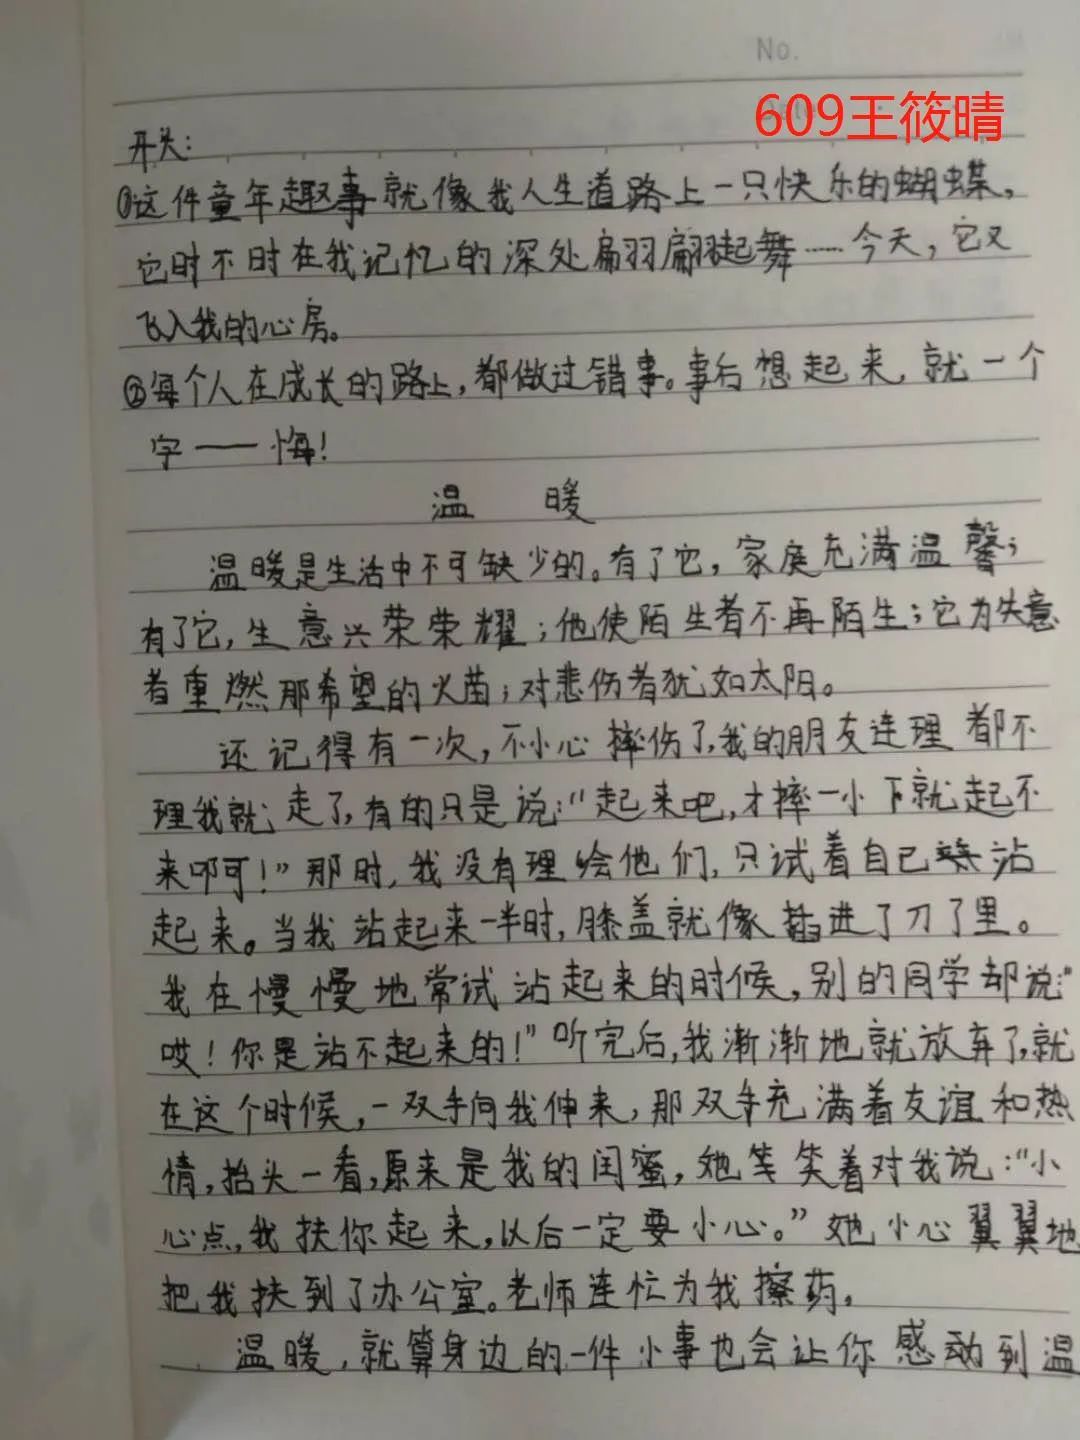 No.
Date
609王筱晴
开头：
①这件童年趣事就像我人生道路上一只快乐的蝴蝶，
它时不时在我记忆的深处扁羽扁羽起舞……今天，它又
飞入我的心房。
②每个人在成长的路上，都做过错事。事后想起来，就一个
字——悔！
温 暖
温暖是生活中不可缺少的。有了它，家庭充满温馨；
有了它，生意兴荣荣耀；他使陌生者不再陌生；它为失意
者重燃那希望的火苗；对悲伤者犹如太阳。
还记得有一次，不小心摔伤了，我的朋友连理都不
理我就走了，有的只是说：“起来吧，才摔一小下就起不
来叩可！”那时，我没有理会他们，只试着自己站
起来。当我站起来一半时，膝盖就像插进了刀了里。
我在慢慢地常试站起来的时候，别的同学却说：“
哎！你是站不起来的！”听完后，我渐渐地就放弃了，就
在这个时候，一双手向我伸来，那双手充满着友谊和热
情，抬头一看，原来是我的闺蜜，她笑笑着对我说：“小
心点，我扶你起来，以后一定要小心。”她小心翼翼地
把我扶到了办公室。老师连忙为我擦药。
温暖，就算身边的一件小事也会让你感动到温